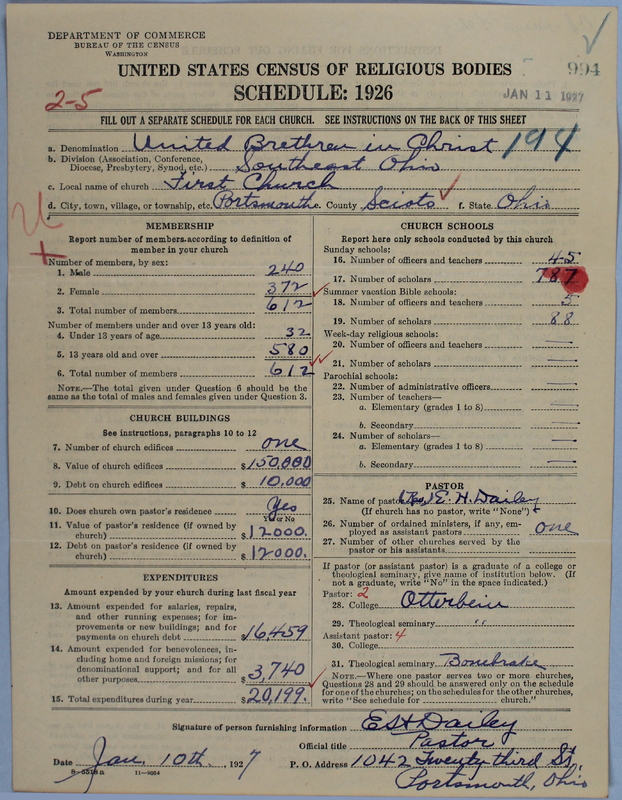 DEPARTMENT OF COMMERCE
BUREAU OF THE CENSUS
WASHINGTON
UNITED STATES CENSUS OF RELIGIOUS BODIES
994
SCHEDULE: 1926
JAN 11 1927
2-5
FILL OUT A SEPARATE SCHEDULE FOR EACH CHURCH. SEE INSTRUCTIONS ON THE BACK OF THIS SHEET
a. Denomination United Brethren in Christ 194
b. Division (Association, Conference,
Diocese, Presbytery, Synod, etc.) Southeast Ohio
c. Local name of church First Church
d. City, town, village, or township, etc. Portsmouth e. County Scioto f. State Ohio
MEMBERSHIP
Report number of members according to definition of
member in your church
Number of members, by sex:
1. Male 240
2. Female 372
3. Total number of members 612
Number of members under and over 13 years old:
4. Under 13 years of age 32
5. 13 years old and over 580
6. Total number of members 612
NOTE.—The total given under Question 6 should be the
same as the total of males and females given under Question 3.
CHURCH BUILDINGS
See instructions, paragraphs 10 to 12
7. Number of church edifices one
8. Value of church edifices $150,000
9. Debt on church edifices $10,000
10. Does church own pastor's residence? Yes
Yes or No
11. Value of pastor's residence (if owned by
church) $12000.
12. Debt on pastor's residence (if owned by
church) $12000.
EXPENDITURES
Amount expended by your church during last fiscal year
13. Amount expended for salaries, repairs,
and other running expenses; for im-
provements or new buildings; and for
payments on church debt $16,459
14. Amount expended for benevolences, in-
cluding home and foreign missions; for
denominational support; and for all
other purposes $3,740
15. Total expenditures during year $20,199.
CHURCH SCHOOLS
Report here only schools conducted by this church
Sunday schools:
16. Number of officers and teachers 45
17. Number of scholars 787
Summer vacation Bible schools:
18. Number of officers and teachers 5
19. Number of scholars 88
Week-day religious schools:
20. Number of officers and teachers —
21. Number of scholars —
Parochial schools:
22. Number of administrative officers —
23. Number of teachers—
a. Elementary (grades 1 to 8) —
b. Secondary —
24. Number of scholars—
a. Elementary (grades 1 to 8) —
b. Secondary —
PASTOR
25. Name of pastor E. H. Dailey
(If church has no pastor, write "None")
26. Number of ordained ministers, if any, em-
ployed as assistant pastors one
27. Number of other churches served by the
pastor or his assistants
If pastor (or assistant pastor) is a graduate of a college or
theological seminary, give name of institution below. (If
not a graduate, write "No" in the space indicated.)
Pastor: 2
28. College Otterbein
29. Theological seminary "
Assistant pastor: 4
30. College
31. Theological seminary Bonebrake
NOTE.—Where one pastor serves two or more churches,
Questions 28 and 29 should be answered only on the schedule
for one of the churches; on the schedules for the other churches,
write "See schedule for church."
Signature of person furnishing information E H Dailey
Official title Pastor
Date Jan. 10th, 1927 P. O. Address 1042 Twenty third St.
11—9064
Portsmouth, Ohio